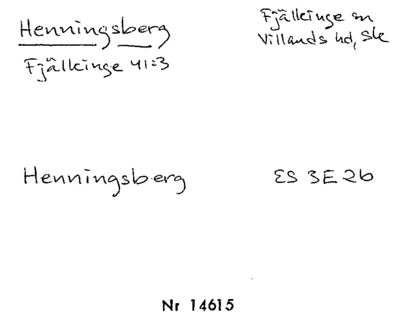 Henningsberg
Fjälkinge sn
Villands hd, Sk
Fjälkinge 41:3
Henningsberg
ES 3E 2b
Nr 14615